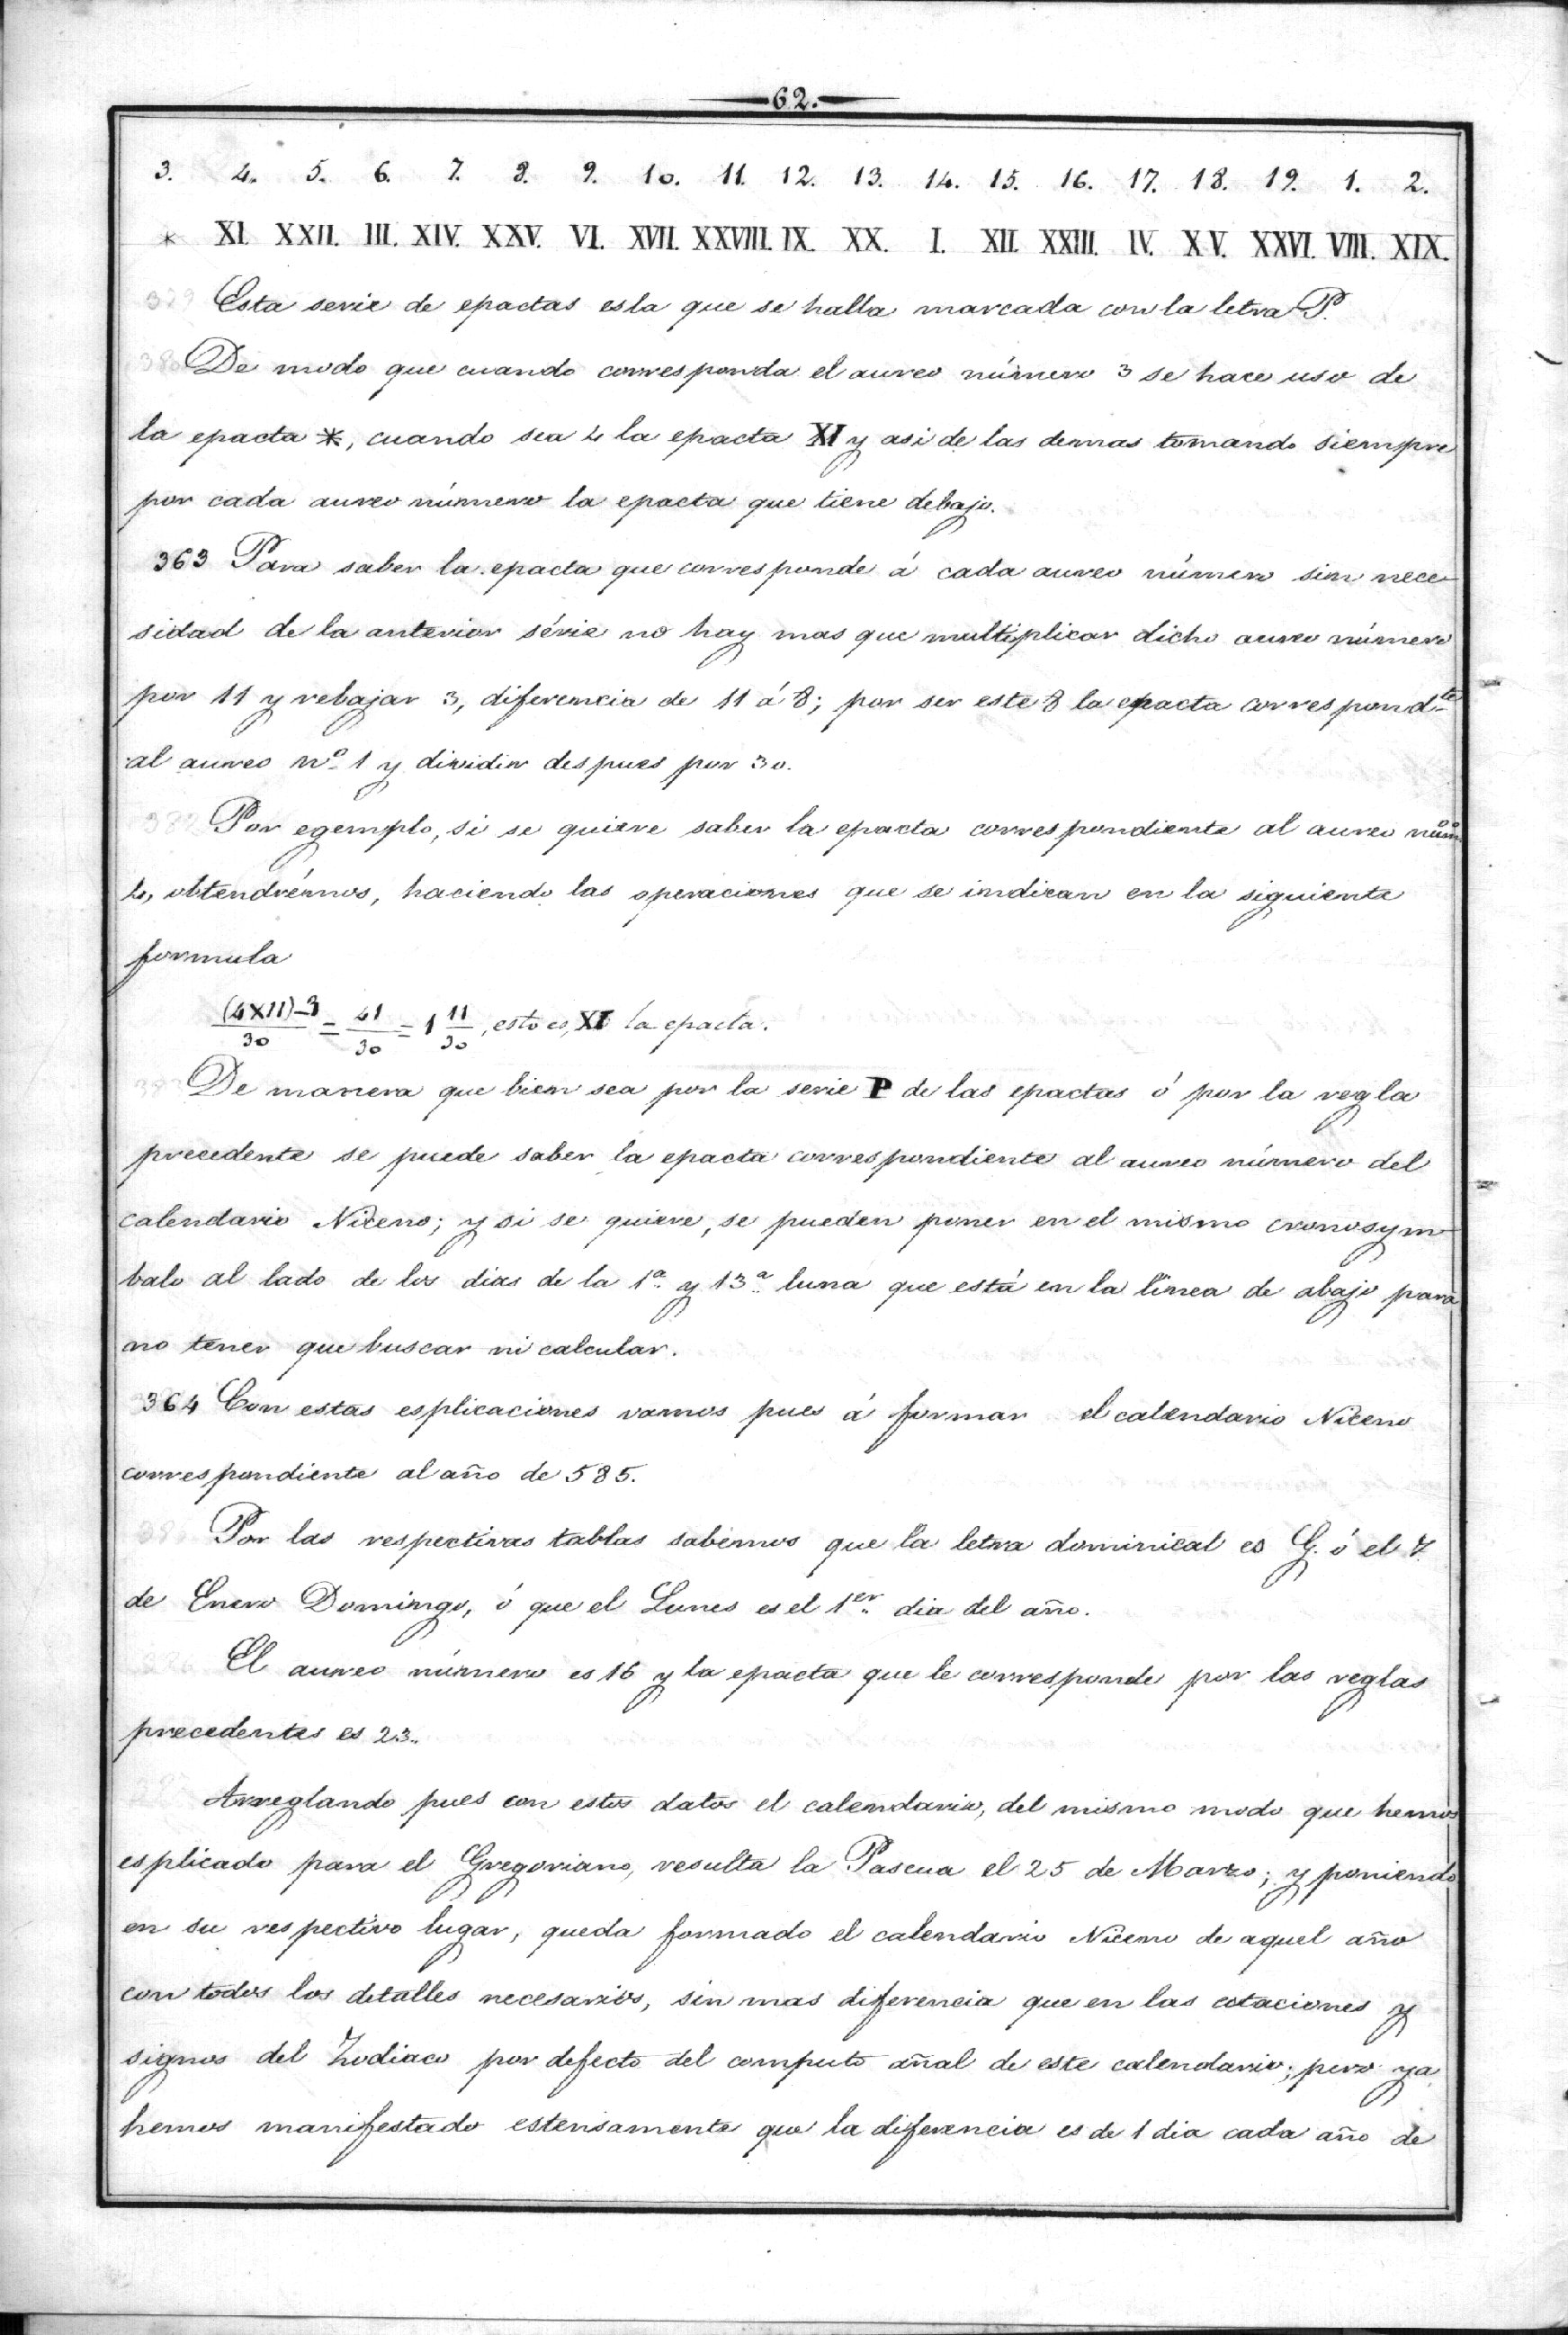 62.
3. 4. 5. 6. 7. 8. 9. 10. 11. 12. 13. 14. 15. 16. 17. 18. 19. 1. 2.
* XI. XXII. III. XIV. XXV. VI. XVII. XXVIII. IX. XX. I. XII. XXIII. IV. XV. XXVI. VIII. XIX.
Esta serie de epactas es la que se halla marcada con la letra P.
De modo que cuando corresponda el aureo número 3 se hace uso de
la epacta *, cuando sea 4 la epacta XI y asi de las demas tomando siempre
por cada aureo número la epacta que tiene debajo.
363 Para saber la epacta que corresponde á cada aureo número sin nece-
sidad de la anterior série no hay mas que multiplicar dicho aureo número
por 11 y rebajar 3, diferencia de 11 á 8; por ser este 8 la epacta correspond.te
al aureo nº 1 y dividir despues por 30.
Por egemplo, si se quiere saber la epacta correspondiente al aureo núm.º
4, obtendrémos, haciendo las operaciones que se indican en la siguiente
formula
(4×11)-3/30 = 41/30 = 1 11/30, esto es, XI la epacta.
De manera que bien sea por la serie P de las epactas ó por la regla
precedente se puede saber la epacta correspondiente al aureo número del
calendario Niceno; y si se quiere, se pueden poner en el mismo cronosym-
balo al lado de los dias de la 1ª y 13ª luna que está en la linea de abajo para
no tener que buscar ni calcular.
364 Con estas esplicaciones vamos pues á formar el calendario Niceno
correspondiente al año de 585.
Por las respectivas tablas sabemos que la letra dominical es G. ó el 7
de Enero Domingo, ó que el Lunes es el 1er dia del año.
El aureo número es 16 y la epacta que le corresponde por las reglas
precedentes es 23.
Arreglando pues con estos datos el calendario, del mismo modo que hemos
esplicado para el Gregoriano, resulta la Pascua el 25 de Marzo; y poniendo
en su respectivo lugar, queda formado el calendario Niceno de aquel año
con todos los detalles necesarios, sin mas diferencia que en las estaciones y
signos del Zodiaco por defecto del computo añal de este calendario; pero ya
hemos manifestado estensamente que la diferencia es de 1 dia cada año de